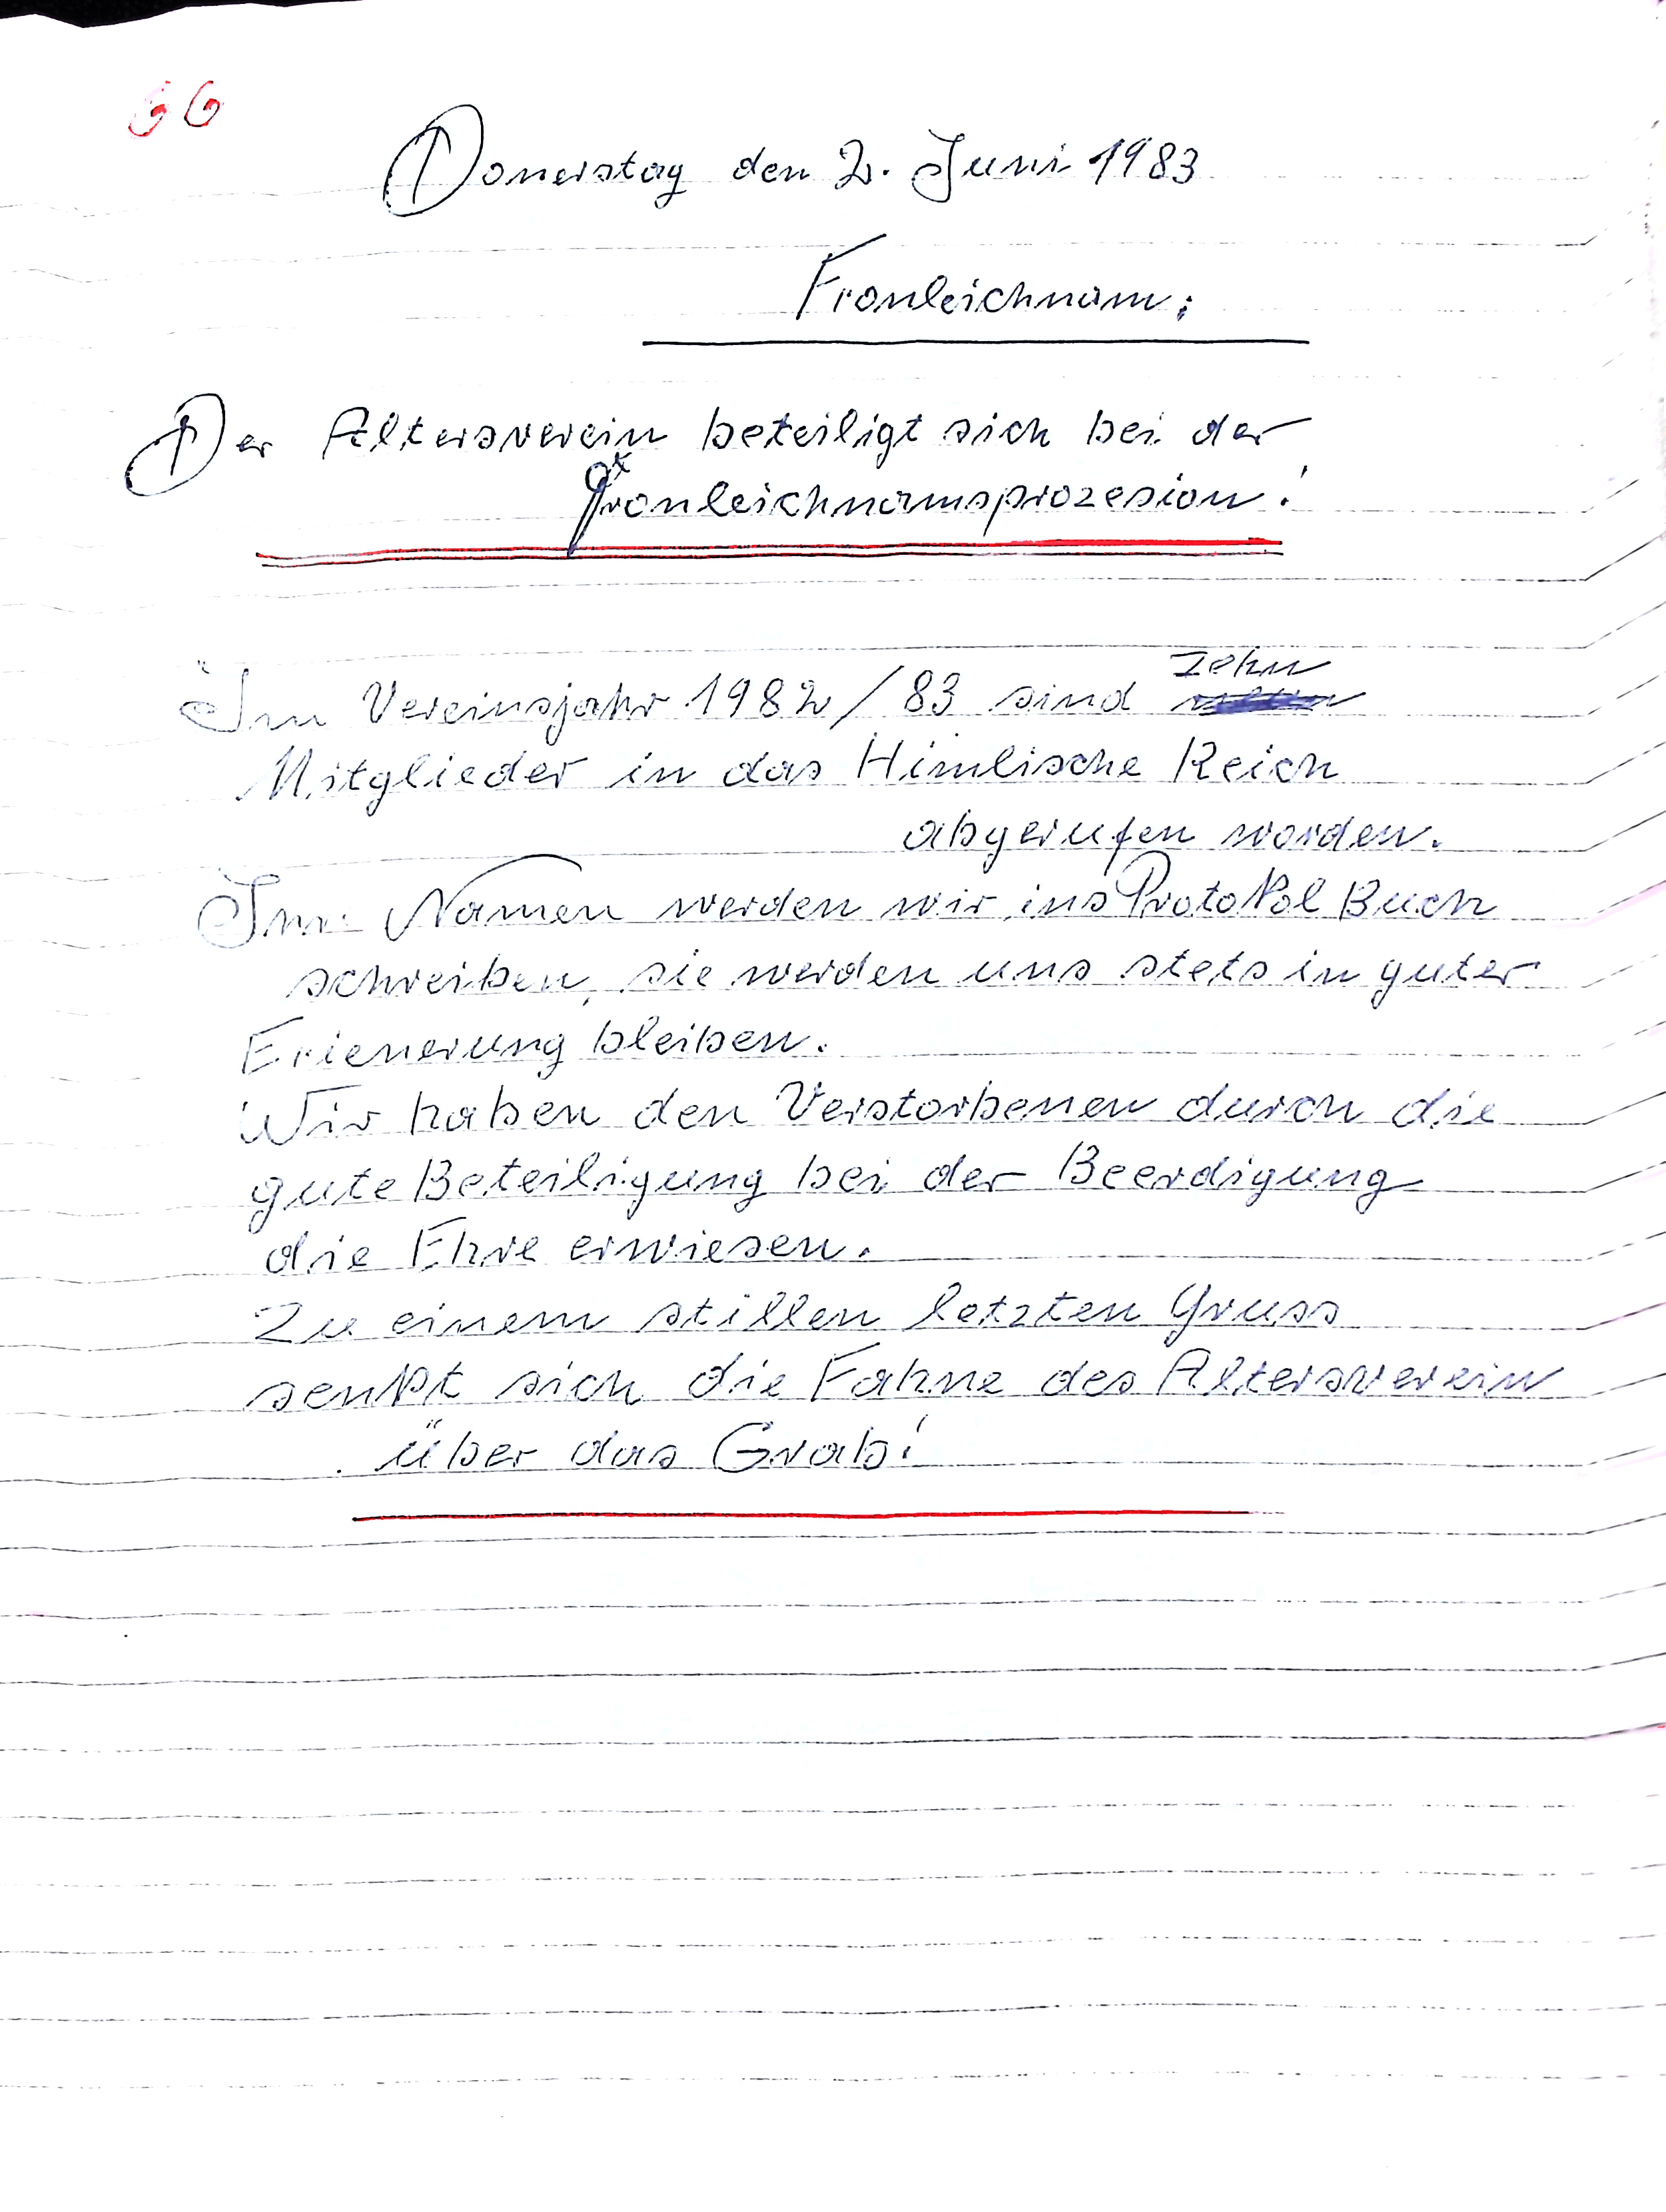 66
Donerstag den 2. Juni 1983
Fronleichnam:
Der Altersverein beteiligt sich bei der
Fronleichnamsprozesion!
Im Vereinsjahr 1982/83 sind zehn
Mitglieder in das Himlische Reich
abgerufen worden.
Ihr Namen werden wir ins Protokol Buch
schreiben, sie werden uns stets in guter
Erienerung bleiben.
Wir haben den Verstorbenen durch die
gute Beteiligung bei der Beerdigung
die Ehre erwiesen.
Zu einem stillen letzten Gruss
senkt sich die Fahne des Altersverein
über das Grab!